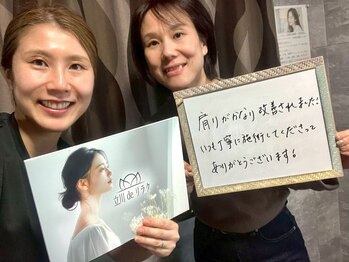 立川 de リラク
肩りがかなり改善されました!
いつも丁寧に施術してくださって
ありがとうございます!